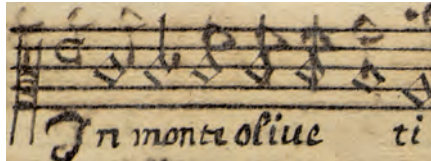 In monte oliue ti